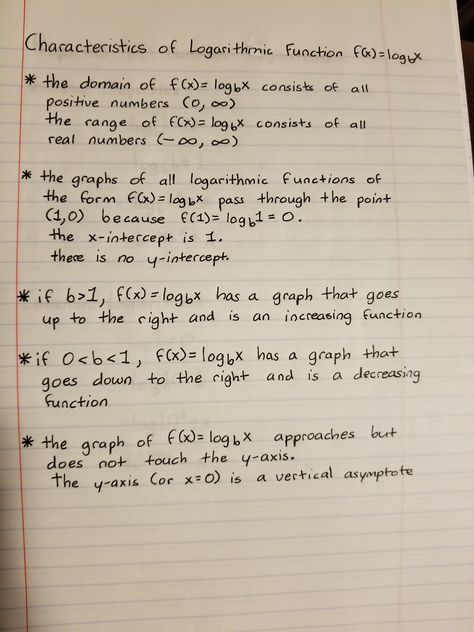 Characteristics of Logarithmic Function f(x)=log_b x
* the domain of f(x)= log_b x consists of all
positive numbers (0, ∞)
the range of f(x)= log_b x consists of all
real numbers (-∞, ∞)
* the graphs of all logarithmic functions of
the form f(x)=log_b x pass through the point
(1,0) because f(1)= log_b 1 = 0.
the x-intercept is 1.
there is no y-intercept.
* if b>1, f(x)=log_b x has a graph that goes
up to the right and is an increasing function
* if 0<b<1, f(x)=log_b x has a graph that
goes down to the right and is a decreasing
function
* the graph of f(x)= log_b x approaches but
does not touch the y-axis.
the y-axis (or x=0) is a vertical asymptote